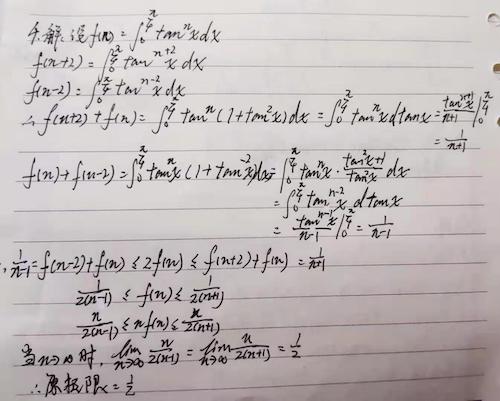 解：设f(n)=∫₀^{π/4} tanⁿx dx
f(n+2)=∫₀^{π/4} tan^{n+2}x dx
f(n-2)=∫₀^{π/4} tan^{n-2}x dx
∴ f(n+2)+f(n)=∫₀^{π/4} tanⁿ(1+tan²x)dx=∫₀^{π/4} tanⁿx dtanx=tan^{n+1}x/(n+1)|₀^{π/4}
=1/(n+1)
f(n)+f(n-2)=∫₀^{π/4} tanⁿx(1+tan^{-2}x)dx=∫₀^{π/4} tanⁿx·(tan²x+1)/(tan²x) dx
=∫₀^{π/4} tan^{n-2}x dtanx
=tan^{n-1}x/(n-1)|₀^{π/4}=1/(n-1)
1/(n-1)=f(n-2)+f(n)≤2f(n)≤f(n+2)+f(n)=1/(n+1)
1/(2(n-1))≤f(n)≤1/(2(n+1))
n/(2(n-1))≤nf(n)≤n/(2(n+1))
当n→∞时，lim_{n→∞} n/(2(n-1))=lim_{n→∞} n/(2(n+1))=1/2
∴原极限=1/2